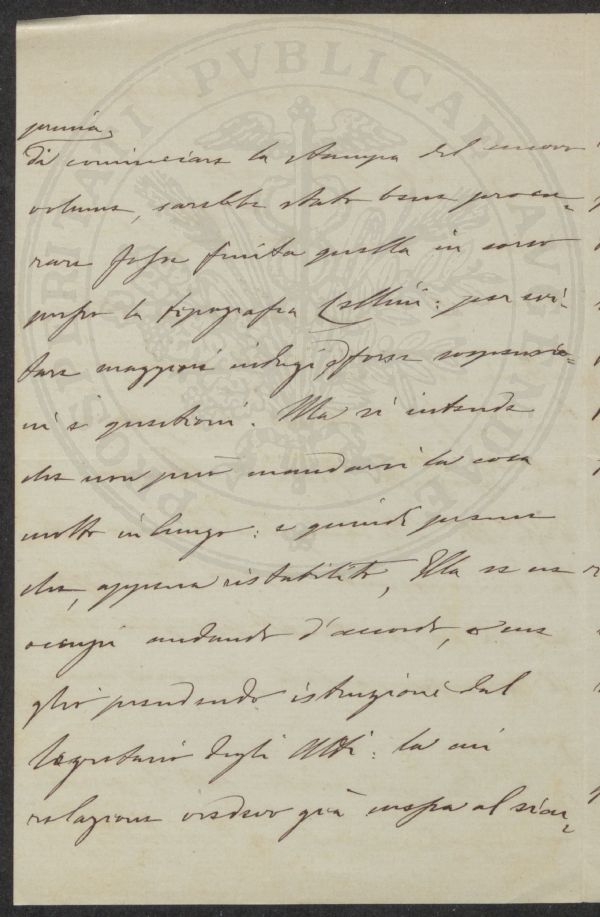 PVBLICAE VTILI
prima,
di cominciare la stampa del nuovo
volume, sarebbe stato bene procu-
rare fosse finita quella in corso
presso la tipografia Cellini: per evi-
tare maggiori indugi e forse sospensio-
ni e questioni. Ma si intende
che non può mandarsi la cosa
molto in lungo: e quindi pensare
che, appena ristabilito, Ella se ne
occupi andando d'accordo, o me-
glio prendendo istruzione dal
Segretario degli Atti: la cui
relazione credevo già messa al sicu-